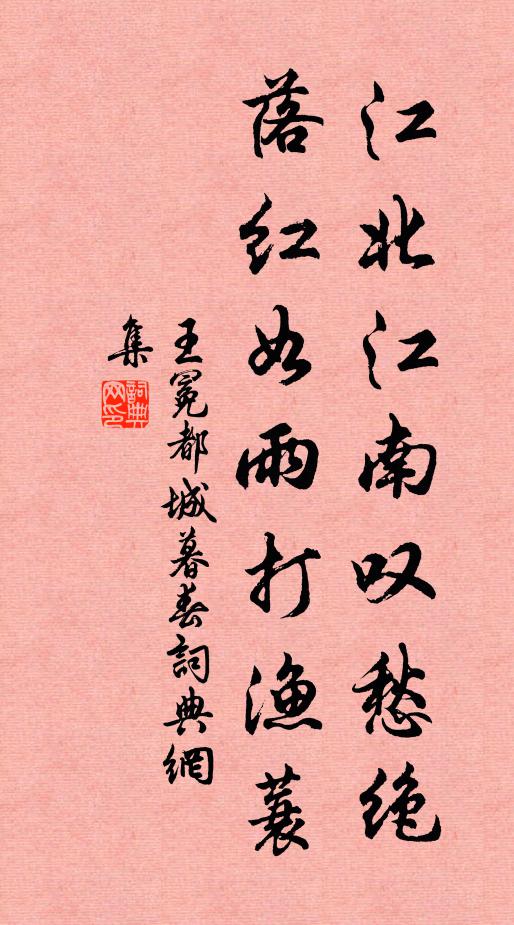 江北江南叹愁绝
落红如雨打渔蓑
王冕都城暮春詞典網
集
詞典網印